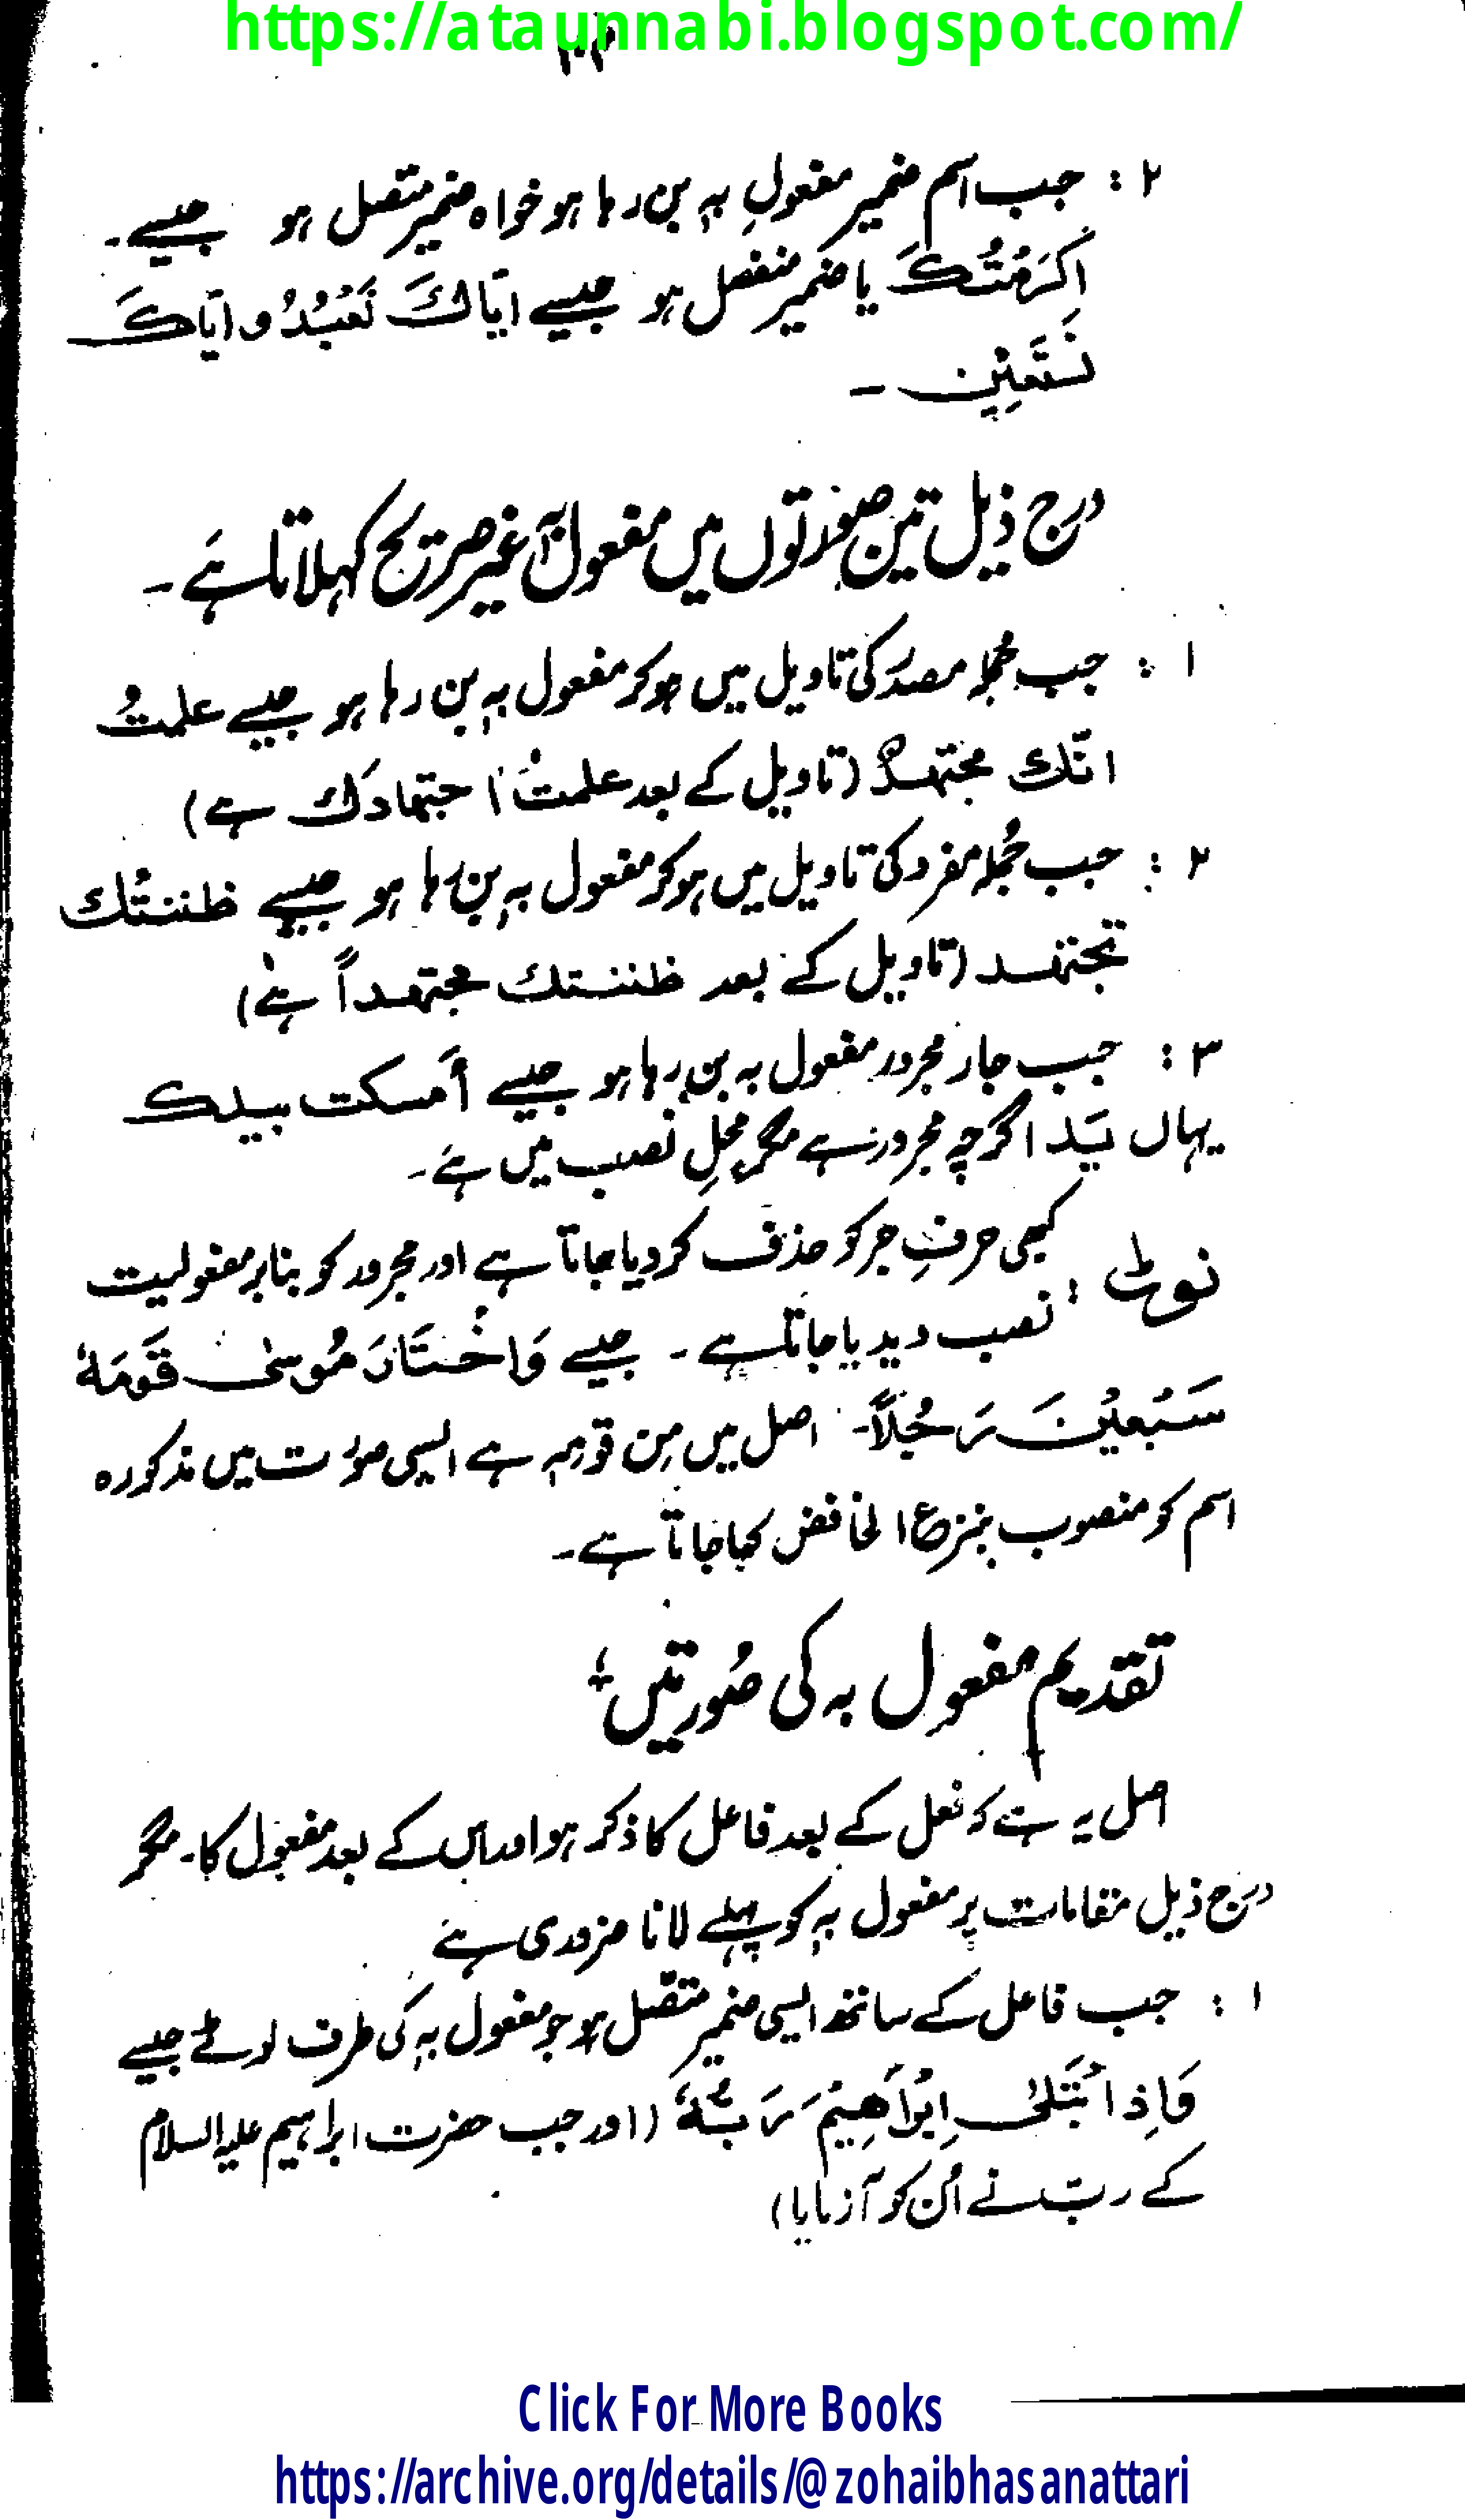 https://ataunnabi.blogspot.com/
۲ : جب اسم ضمیر مفعولِ بہٖ بن رہا ہو خواہ ضمیر متصل ہو جیسے۔
اَکْرَمْتُکَ یا ضمیر منفصل ہو جیسے ایّاکَ نَعْبُدُ و ایّاکَ
نَسْتَعِیْن ۔
درج ذیل تین صورتوں میں مفعول بہٖ غیر صریح کہلاتا ہے۔
۱ : جب جملہ مصدر کی تاویل میں ہو کر مفعول بہٖ بن رہا ہو جیسے علمتُ
انّک مجتہدٌ (تاویل کے بعد علمتُ اجتہادَک ہے)
۲ : جب جملہ مفرد کی تاویل میں ہو کر مفعول بہٖ بن رہا ہو جیسے ظننتُک
تجتہد (تاویل کے بعد ظننتک مجتہداً ہے)
۳ : جب جار مجرور مفعول بہ بن رہا ہو جیسے أمسکت بیدک
یہاں یَد اگرچہ مجرور ہے مگر محلِ نصب میں ہے۔
نوٹ : کبھی حرفِ جر کو حذف کر دیا جاتا ہے اور مجرور کو بنا بر مفعولیت
نصب دیدیا جاتا ہے ۔ جیسے وَاخْتَارَ مُوسٰی قَوْمَہٗ
سَبْعِیْنَ رَجُلاً۔ اصل میں مِن قومِہٖ ہے ایسی صورت میں مذکورہ
اسم کو منصوب بنزع الخافض کہا جاتا ہے۔
تقدیم مفعول بہ کی صورتیں
اصل یہ ہے کہ فعل کے بعد فاعل کا ذکر ہو اور اس کے بعد مفعول کا۔ مگر
درج ذیل مقامات پر مفعول بہٖ کو پہلے لانا ضروری ہے
۱ : جب فاعل کے ساتھ ایسی ضمیر متصل ہو جو مفعول بہٖ کی طرف لوٹے جیسے
وَاِذِ ابْتَلٰی اِبْرَاهِیْمَ رَبُّهٗ (اور جب حضرت ابراہیم علیہ السلام
کے ربّ نے اُن کو آزمایا)
Click For More Books
https://archive.org/details/@zohaibhasanattari